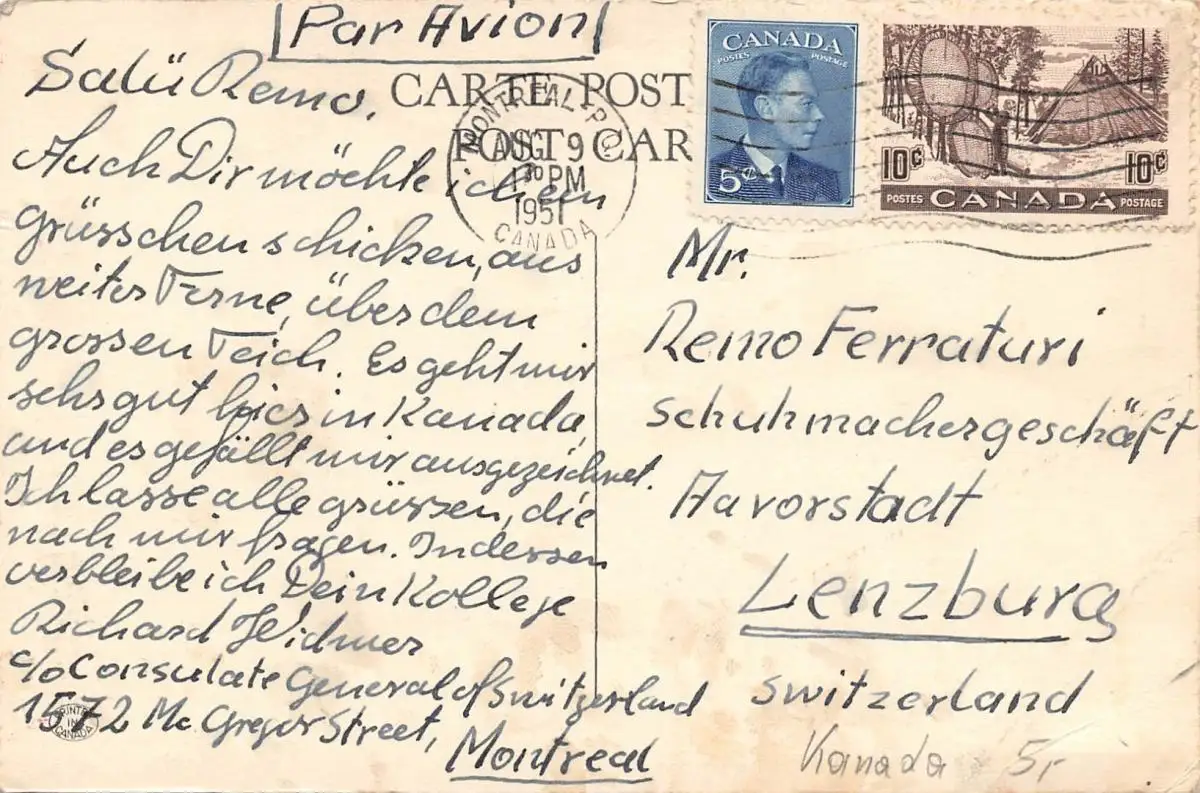 Par Avion
Salü Remo.
Auch Dir möchte ich ein
grüsschen schicken, aus
weiter Ferne, über dem
grossen Teich. Es geht mir
sehr gut hier in Kanada,
und es gefällt mir ausgezeichnet.
Ich lasse alle grüssen, die
nach mir fragen. Indessen
verbleibe ich Dein Kollege
Richard Widmer
c/o Consulate General of Switzerland
1572 Mc. Gregor Street,
Montreal
PRINTED
IN
CANADA
CARTE POST
POST CAR
MONTREAL P.Q.
AUG 9
1 30 PM
1951
CANADA
CANADA
POSTES POSTAGE
5¢
10¢ 10¢
POSTES CANADA POSTAGE
Mr.
Remo Ferraturi
Schuhmachergeschäft
Aavorstadt
Lenzburg
Switzerland
Kanada 5,-